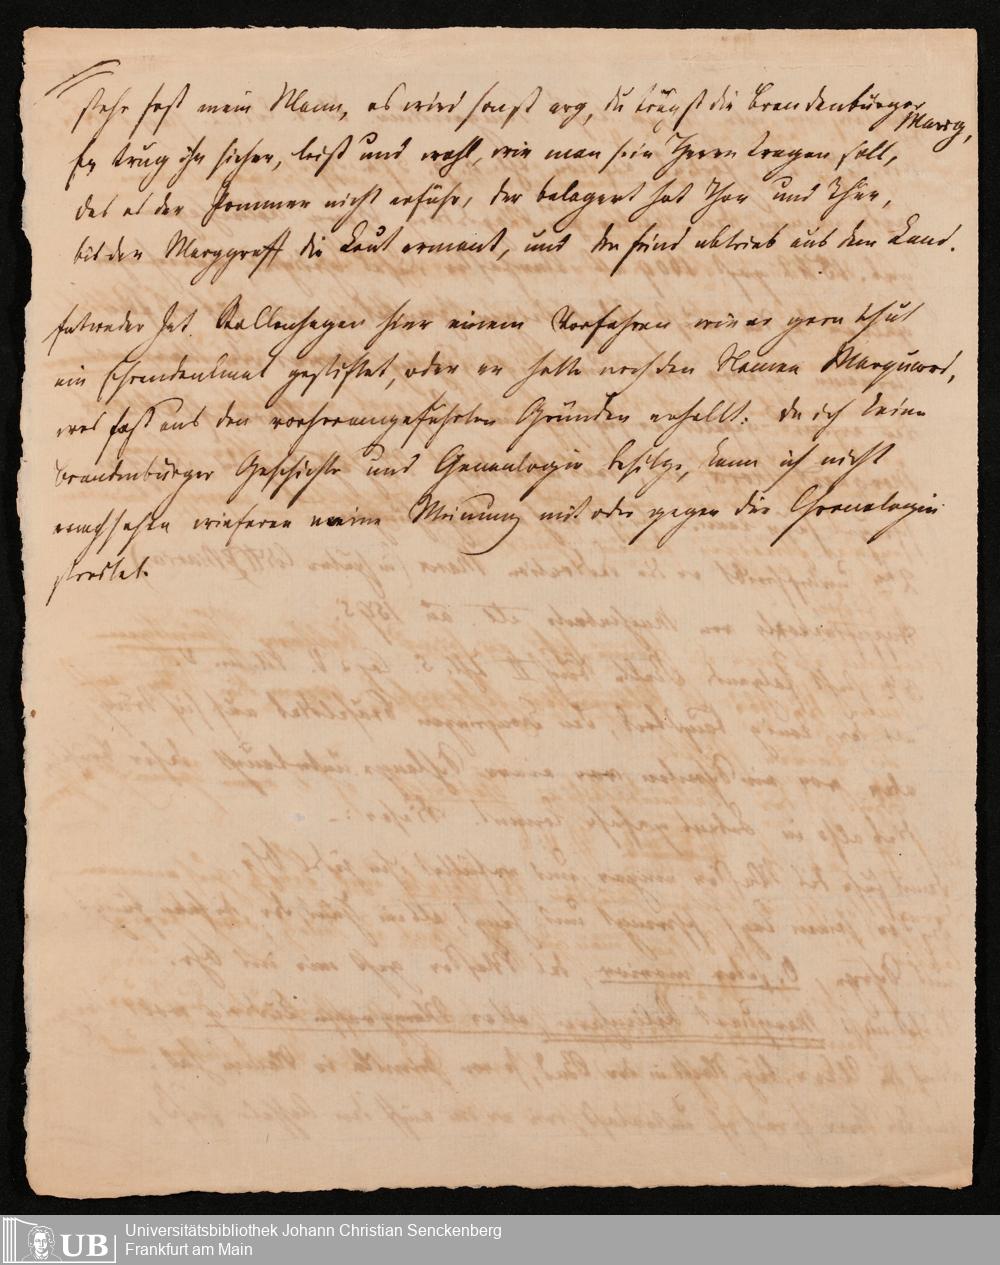 stehe fest mein Mann, es wird sonst arg, du trägst die Brandenburger
Marrg,
Er trug ihn sicher, leiß und wohl, wie man sein Herrn tragen soll,
das es der Pommer nicht erfuhr, der belagert hat Thor und Thür,
bis der Marggraff die Leut ermant, und den feind abtrieb aus dem Land.
Entweder hat Rollenhagen hier einem Vorfahren wie er gern thut
ein Ehrendenkmal gestiftet, oder er hatte noch den Namen Marquard,
was fast aus den vorherangeführten Gründen erhellt: da ich keine
brandenburger Geschichte und Genealogie besitze, kann ich nicht
nachsehen wiefern meine Meinung mit oder gegen die Chronologie
streitet.
Universitätsbibliothek Johann Christian Senckenberg
Frankfurt am Main
UB